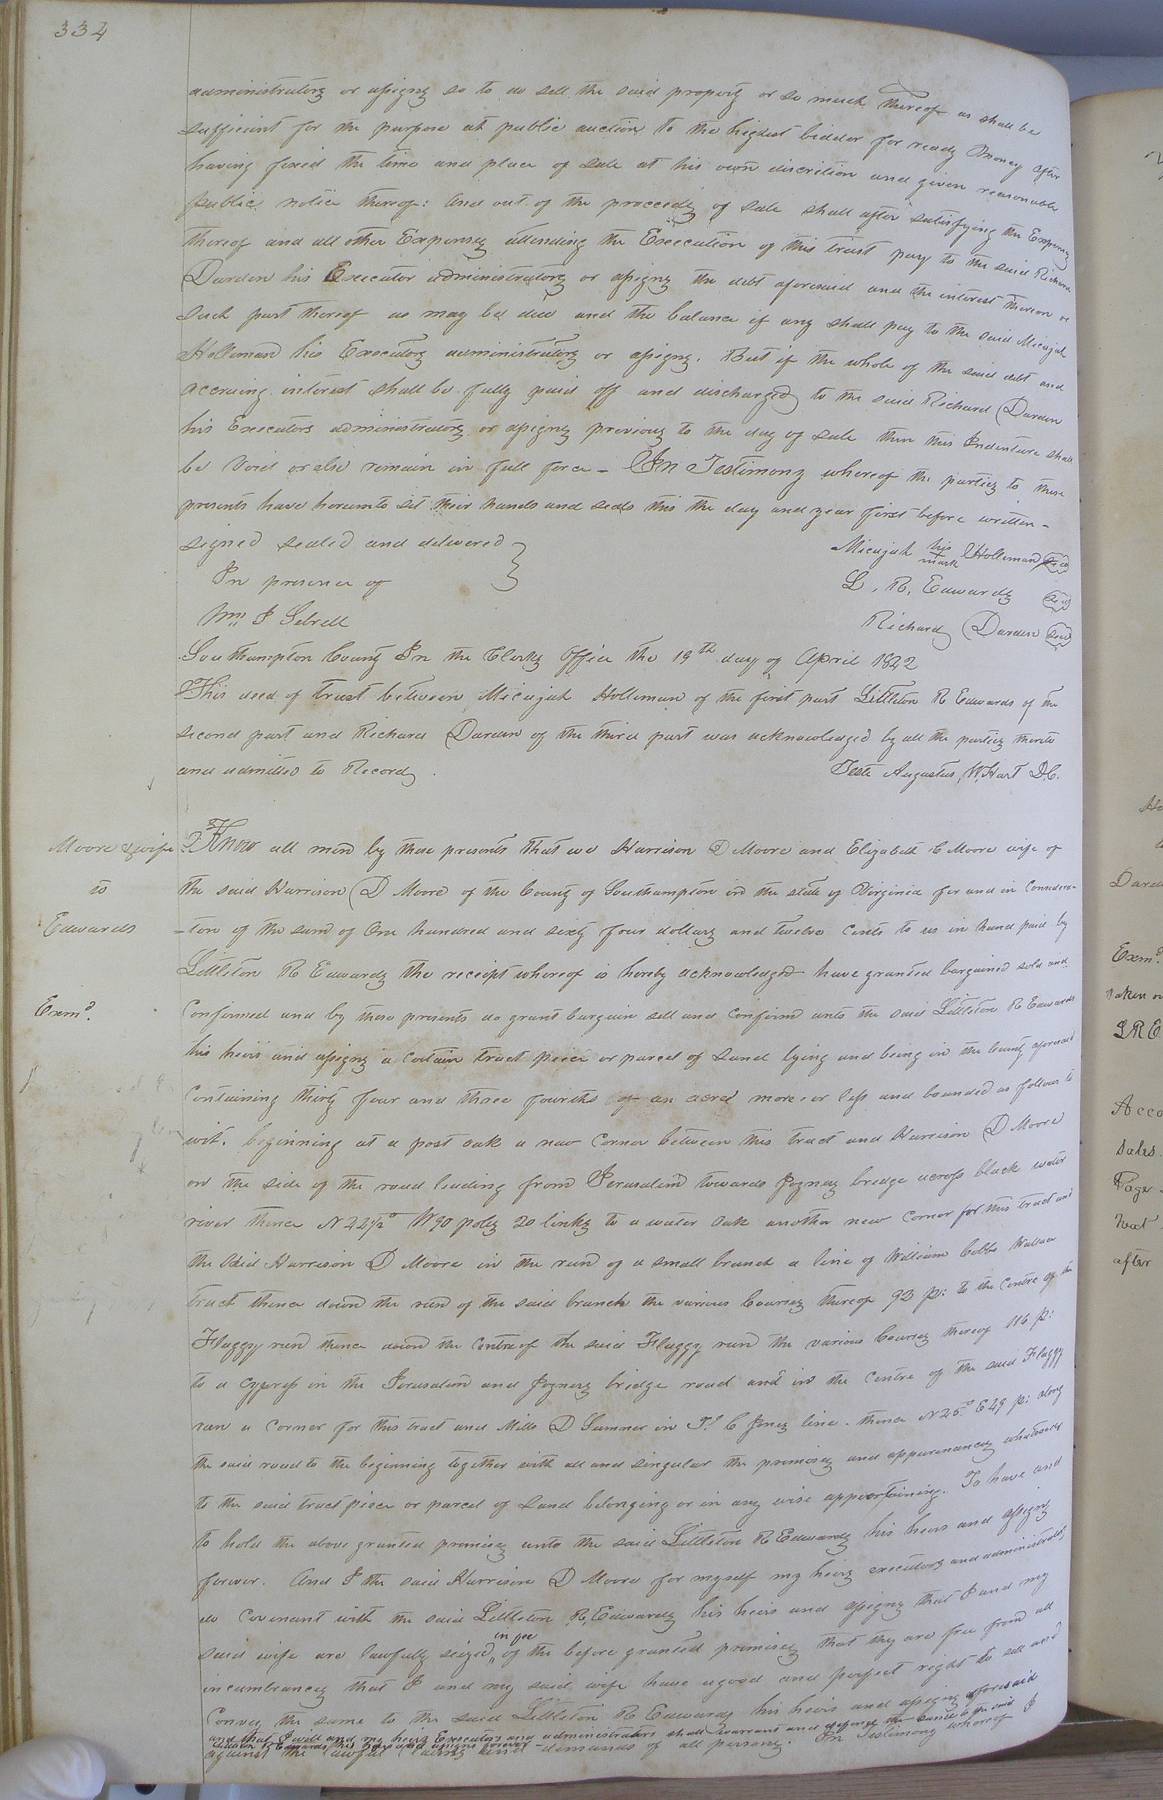 334
administrators or assigns so to do sell the said property or so much thereof as shall be
sufficient for the purpose at public auction to the highest bidder for ready money after
having fixed the time and place of sale at his own discretion and given reasonable
public notice thereof: And out of the proceeds of sale shall after satisfying the Expenses
thereof and all other Expenses attending the Execution of this trust pay to the said Richard
Darden his Executor administrators or assigns the debt aforesaid and the interest thereon or
such part thereof as may be due and the balance if any shall pay to the said Micajah
Holleman his Executors administrators or assigns. But if the whole of the said debt and
accruing interest shall be fully paid off and discharged to the said Richard Darden
his Executors administrators or assigns previous to the day of sale then this Indenture shall
be Void or else remain in full force – In Testimony whereof the parties to these
presents have hereunto set their hands and seals this the day and year first before written –
signed sealed and delivered }
In presence of
Wm J Sebrell
Micajah his mark Holleman seal
L. R. Edwards seal
Richard Darden seal
Southampton County In the Clerks Office the 19th day of April 1842
This deed of trust between Micajah Holleman of the first part Littleton R Edwards of the
second part and Richard Darden of the third part was acknowledged by all the parties thereto
and admitted to Record.
Teste Augustus W. Hart D.C.
Moore & wife
to
Edwards
Exmd.
Know all men by these presents that we Harrison D Moore and Elizabeth C Moore wife of
the said Harrison D Moore of the County of Southampton in the state of Virginia for and in Considera-
-tion of the sum of One hundred and sixty four dollars and twelve Cents to us in hand paid by
Littleton R Edwards the receipt whereof is hereby acknowledged have granted bargained sold and
Confirmed and by these presents do grant bargain sell and Confirm unto the said Littleton R Edwards
his heirs and assigns a certain tract piece or parcel of Land lying and being in the County aforesaid
Containing thirty four and three fourths of an acre more or less and bounded as follows to
wit. beginning at a post oak a new Corner between this tract and Harrison D Moore
on the side of the road leading from Jerusalem towards Joyners bridge across black water
river thence N 22½° W 90 poles 20 links to a water oak another new Corner for this tract and
the said Harrison D Moore in the run of a small branch a line of William Cobbs Wallace
tract thence down the run of the said branch the various Courses thereof 93 p: to the Centre of the
Flaggy run thence down the Centre of the said Flaggy run the various Courses thereof 116 p:
to a Cypress in the Jerusalem and Joyners bridge road and in the Centre of the said Flaggy
run a corner for this tract and Mills D Sumner in C Jones line. thence N 25° E 29 p: along
the said road to the beginning together with all and singular the premises and appurtenances whatsoever
to the said tract piece or parcel of Land belonging or in any wise appertaining. To have and
to hold the above granted premises unto the said Littleton R Edwards his heirs and assigns
forever. And I the said Harrison D Moore for myself my heirs executors and administrators
do Covenant with the said Littleton R. Edwards his heirs and assigns that I and my
said wife are lawfully seized in fee of the before granted premises that they are free from all
incumbrances that I and my said wife have a good and perfect right to sell and
Convey the same to the said Littleton R Edwards his heirs and assigns aforesaid
and that I will and my heirs Executors and administrators shall warrant and defend the same to the said
Littleton R Edwards his heirs and assigns forever
against the lawful claims and demands of all persons. In Testimony whereof I
Exmd.
L R E
after